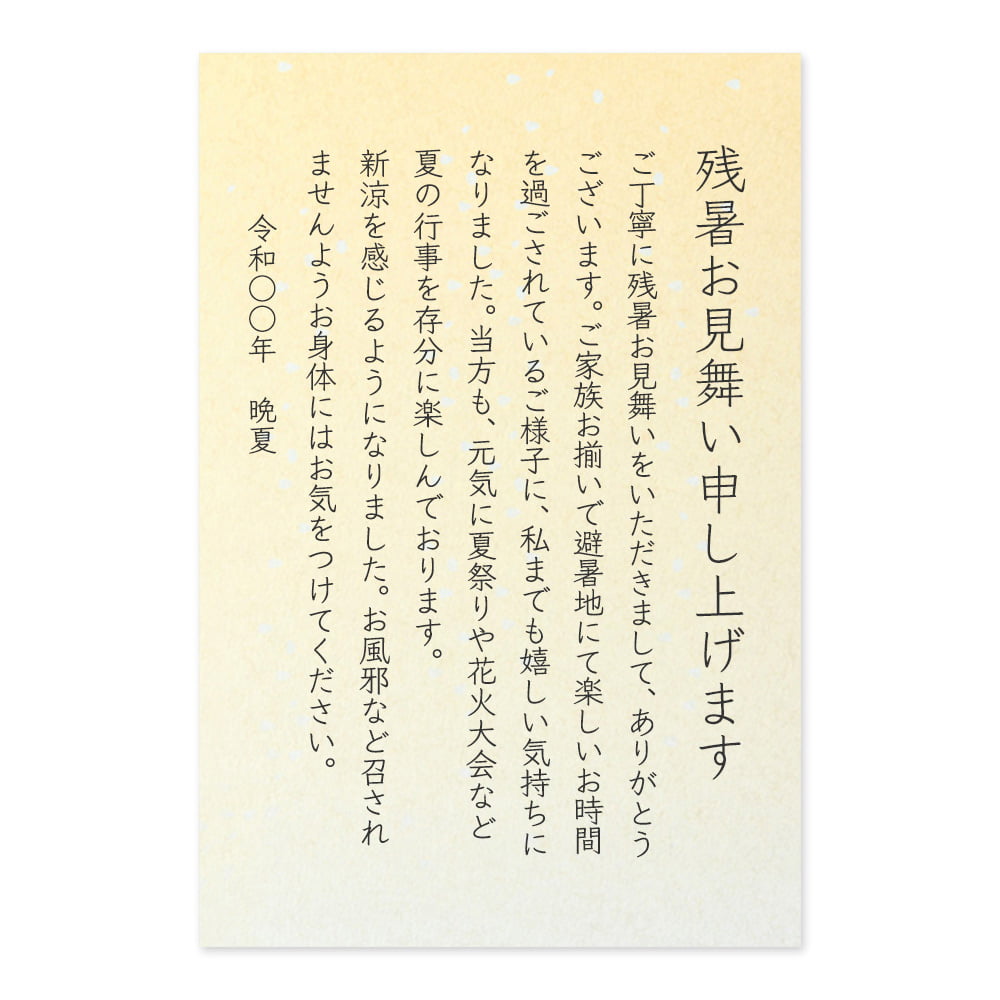 残暑お見舞い申し上げます
ご丁寧に残暑お見舞いをいただきまして、ありがとう
ございます。ご家族お揃いで避暑地にて楽しいお時間
を過ごされているご様子に、私までも嬉しい気持ちに
なりました。当方も、元気に夏祭りや花火大会など
夏の行事を存分に楽しんでおります。
新涼を感じるようになりました。お風邪など召され
ませんようお身体にはお気をつけてください。
令和〇〇年　晩夏